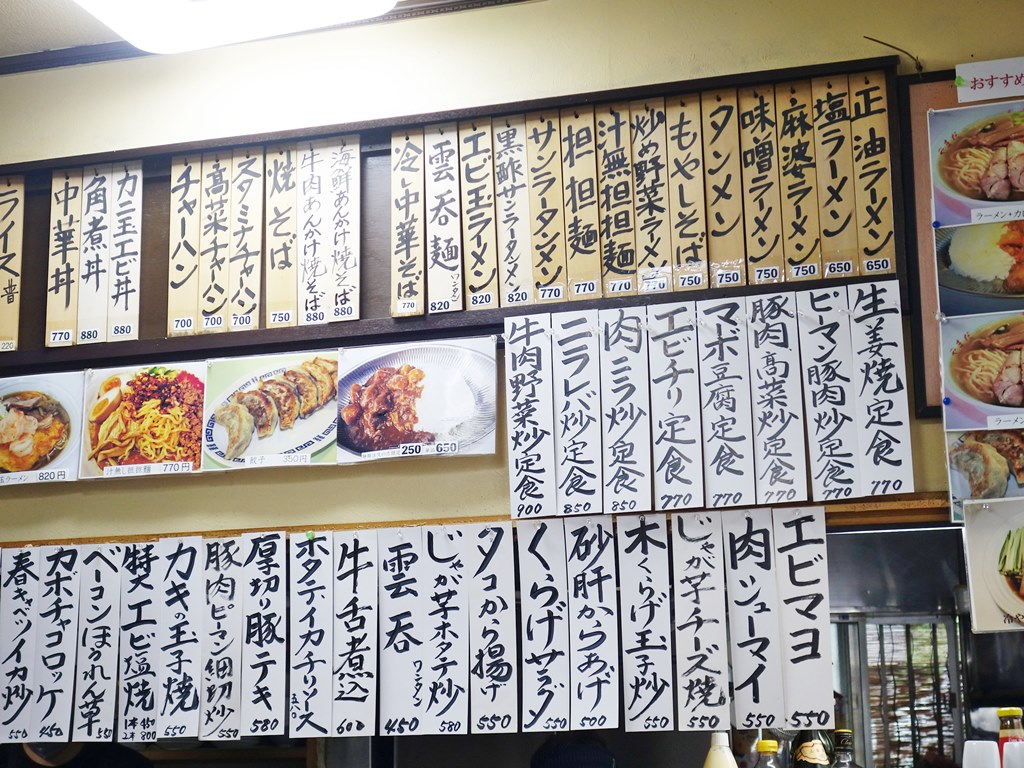 正油ラーメン 650
塩ラーメン 650
麻婆ラーメン 750
味噌ラーメン 750
タンメン 750
もやしそば 750
炒め野菜ラーメン
汁無担担麺 770
担担麺 770
サンラータンメン 770
黒酢サンラータンメン 820
エビ玉ラーメン 820
雲呑麺 ワンタン 820
冷し中華そば 770
海鮮あんかけ焼そば 880
牛肉あんかけ焼そば 880
焼そば 750
スタミナチャーハン 700
高菜チャーハン 700
チャーハン 700
カニ玉エビ丼 880
角煮丼 880
中華丼 770
ライス 普 220
生姜焼定食 770
ピーマン豚肉炒定食 770
豚肉高菜炒定食 770
マボ豆腐定食 770
エビチリ定食 770
肉ニラ炒定食 850
ニラレバ炒定食 850
牛肉野菜炒定食 900
玉ラーメン 820円
汁無し担担麺 770円
餃子 350円
250 650
エビマヨ 550
肉シューマイ 550
じゃが芋チーズ焼 550
木くらげ玉子炒 550
砂肝からあげ 500
くらげサラダ 550
タコから揚げ 550
じゃが芋ホタテ炒 580
雲呑 ワンタン 450
牛舌煮込 600
ホタテイカチリソース
厚切り豚テキ 580
豚肉ピーマン細切炒 550
カキの玉子焼 550
特大エビ塩焼 1本 450 2本 800
ベーコンほうれん草 550
カボチャコロッケ 450
春キャベツイカ炒 550
おすすめ
ラーメン・カ
ラーメ
冷や